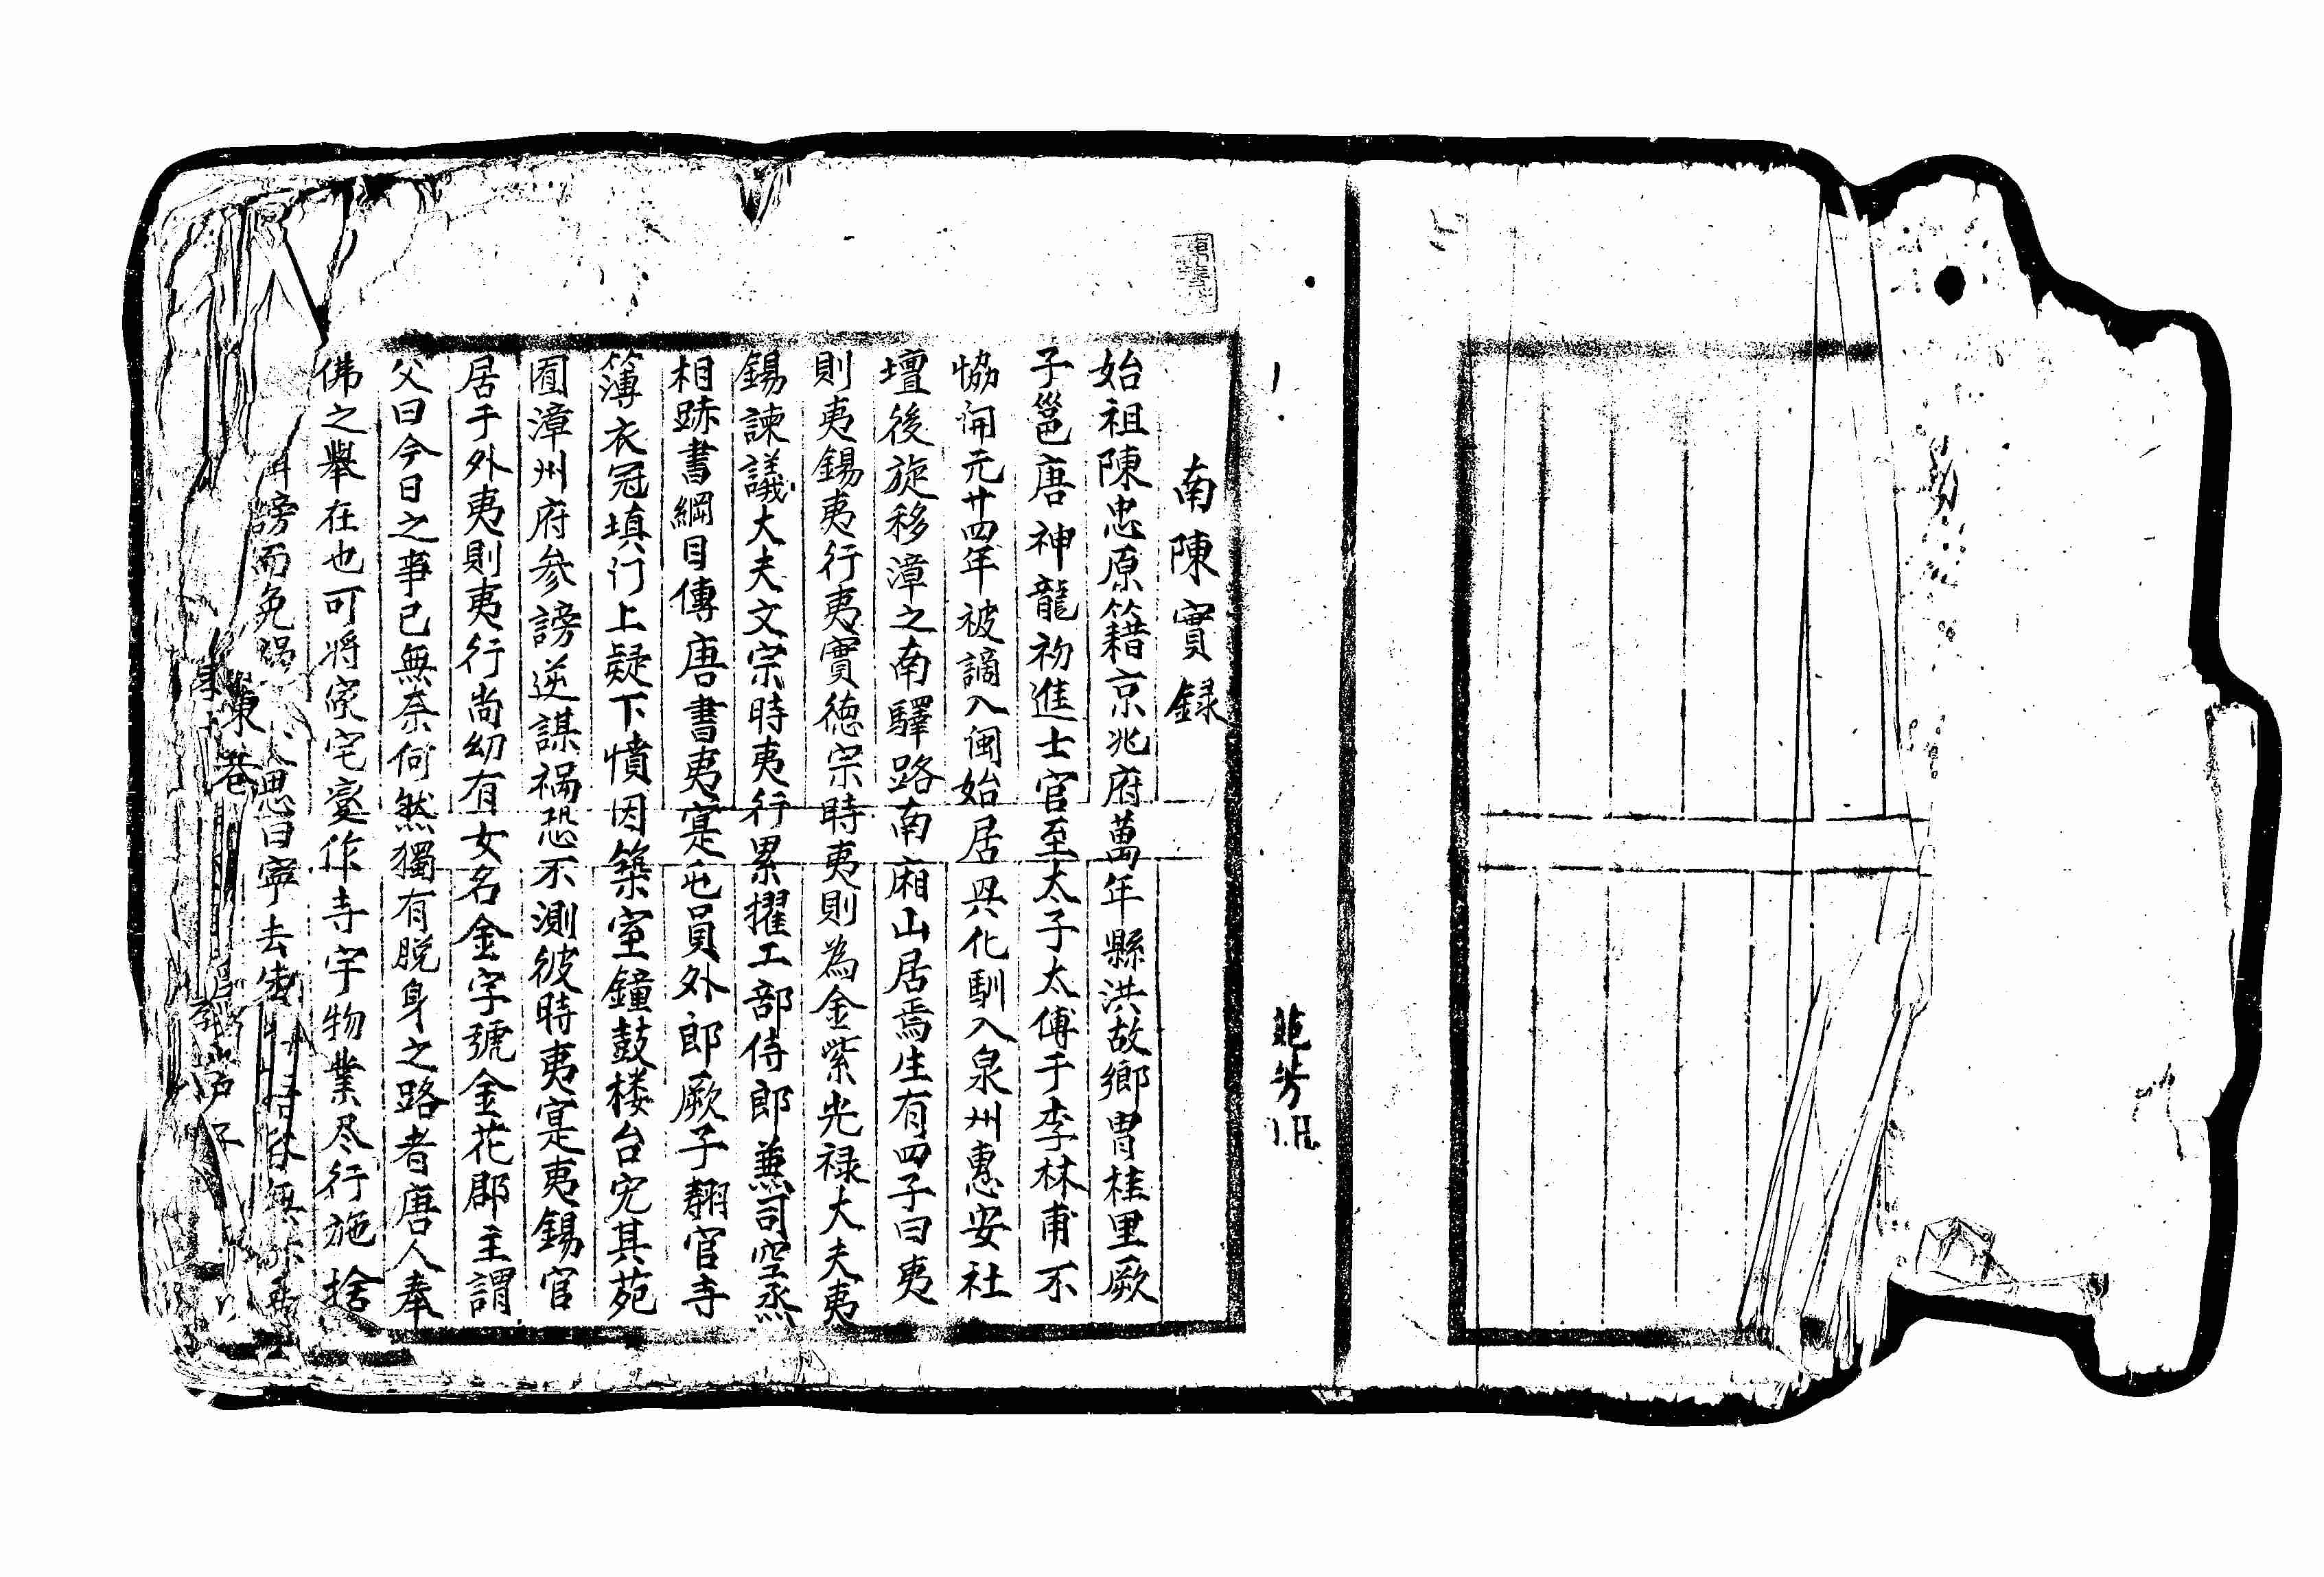 范芳
南陳實録
始祖陳忠原籍京兆府萬年縣洪故鄉胄桂里厥
子邕唐神龍初進士官至太子太傅于李林甫不
恊開元廿四年被謫入闽始居興化馴入泉州惠安社
壇後旋移漳之南驛路南廂山居焉生有四子曰夷
則夷錫夷行夷實德宗時夷則為金紫光禄大夫夷
錫諫議大夫文宗時夷行累擢工部侍郎兼司空丞
相跡書綱目傳唐書夷寔屯員外郎厥子翱官寺
簿衣冠填门上疑下憤因築室鐘鼓楼台宂其苑
囿漳州府参謗逆謀禍恐不測彼時夷寔夷錫官
居于外夷則夷行尚幼有女名金字號金花郡主謂
父曰今日之事已無奈何然獨有脱身之路者唐人奉
佛之舉在也可将家宅変作寺宇物業尽行施捨
謗而免禍 思曰寧去
東巷